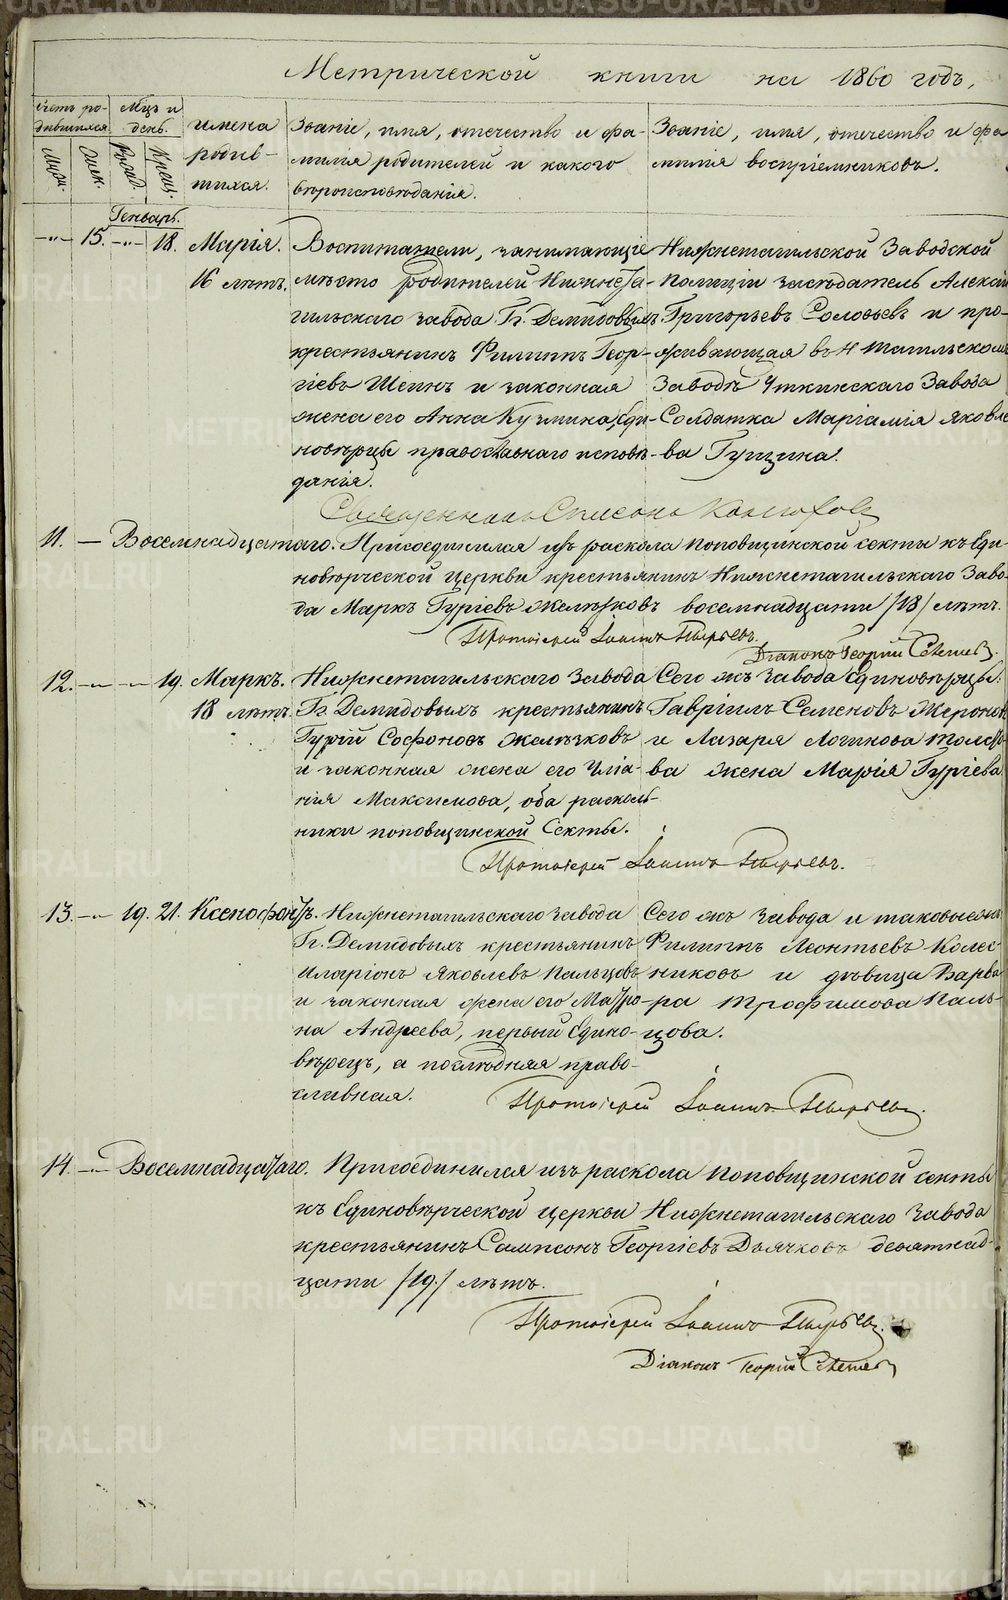 Метрической книги на 1860 годъ,
Счетъ ро-
дившихся.
Муж. Жен.
Мцъ и
день.
Рожд. Крещ.
имена
родив-
шихся.
Званіе, имя, отечество и фа-
милія родителей и какого
вѣроисповѣданія.
Званіе, имя, отечество и фа
милія воспріемниковъ.
Генварь.
-"- 15. -"- 18. Марія.
16 лѣтъ.
Воспитатели, занимающіе
мѣсто родителей Нижнета-
гильскаго завода Гг. Демидовыхъ
крестьянинъ Филиппъ Геор-
гіевъ Шеинъ и законная
жена его Анна Кузмина, Еди-
новѣрцы православнаго исповѣ-
данія.
Нижнетагильской Заводской
Полиціи засѣдатель Алексѣй
Григорьевъ Соловьевъ и про-
живающая въ Н Тагильскомъ
Заводѣ Уткинскаго Завода
Солдатка Маріамія Яковле
ва Гущина.
Священникъ
11. — Восемнадцатаго. Присоединился изъ раскола поповщинской секты къ Еди-
новѣрческой церкви крестьянинъ Нижнетагильскаго Заво-
да Маркъ Гуріевъ Желѣзковъ восемнадцати /18/ лѣтъ.
Протоіерей Іоаннъ Пырьевъ.
Діаконъ Георгій
12. -"- -"- 19. Маркъ.
18 лѣтъ.
Нижнетагильскаго Завода
Гг. Демидовыхъ крестьянинъ
Гурій Софоновъ Желѣзковъ
и законная жена его Уліа-
нія Максимова, оба расколь-
ники поповщинской Секты.
Сего жъ Завода Единовѣрцы:
Гавріилъ Семеновъ Жеронов
и Лазаря Логинова Толсто-
ва жена Марія Гуріева
Протоіерей Іоаннъ Пырьевъ.
13. -"- 19. 21. Ксенофонтъ.
Нижнетагильскаго завода
Гг. Демидовыхъ крестьянинъ
Иларіонъ Яковлевъ Пальцовъ
и законная жена его Матро-
на Андреева, первый Едино-
вѣрецъ, а послѣдняя право-
славная.
Сего жъ Завода и таковые жъ
Филиппъ Леонтьевъ Колес
никовъ и дѣвица Варва
ра Трофимова Паль-
цова.
Протоіерей Іоаннъ Пырьевъ.
14. -"- Восемнадцатаго. Присоединился изъ раскола поповщинской секты
къ Единовѣрческой церкви Нижнетагильскаго Завода
крестьянинъ Сампсонъ Георгіевъ Дьячковъ девятнад-
цати /19./ лѣтъ.
Протоіерей Іоаннъ Пырьевъ.
Діаконъ Георгій
METRIKI.GASO-URAL.RU